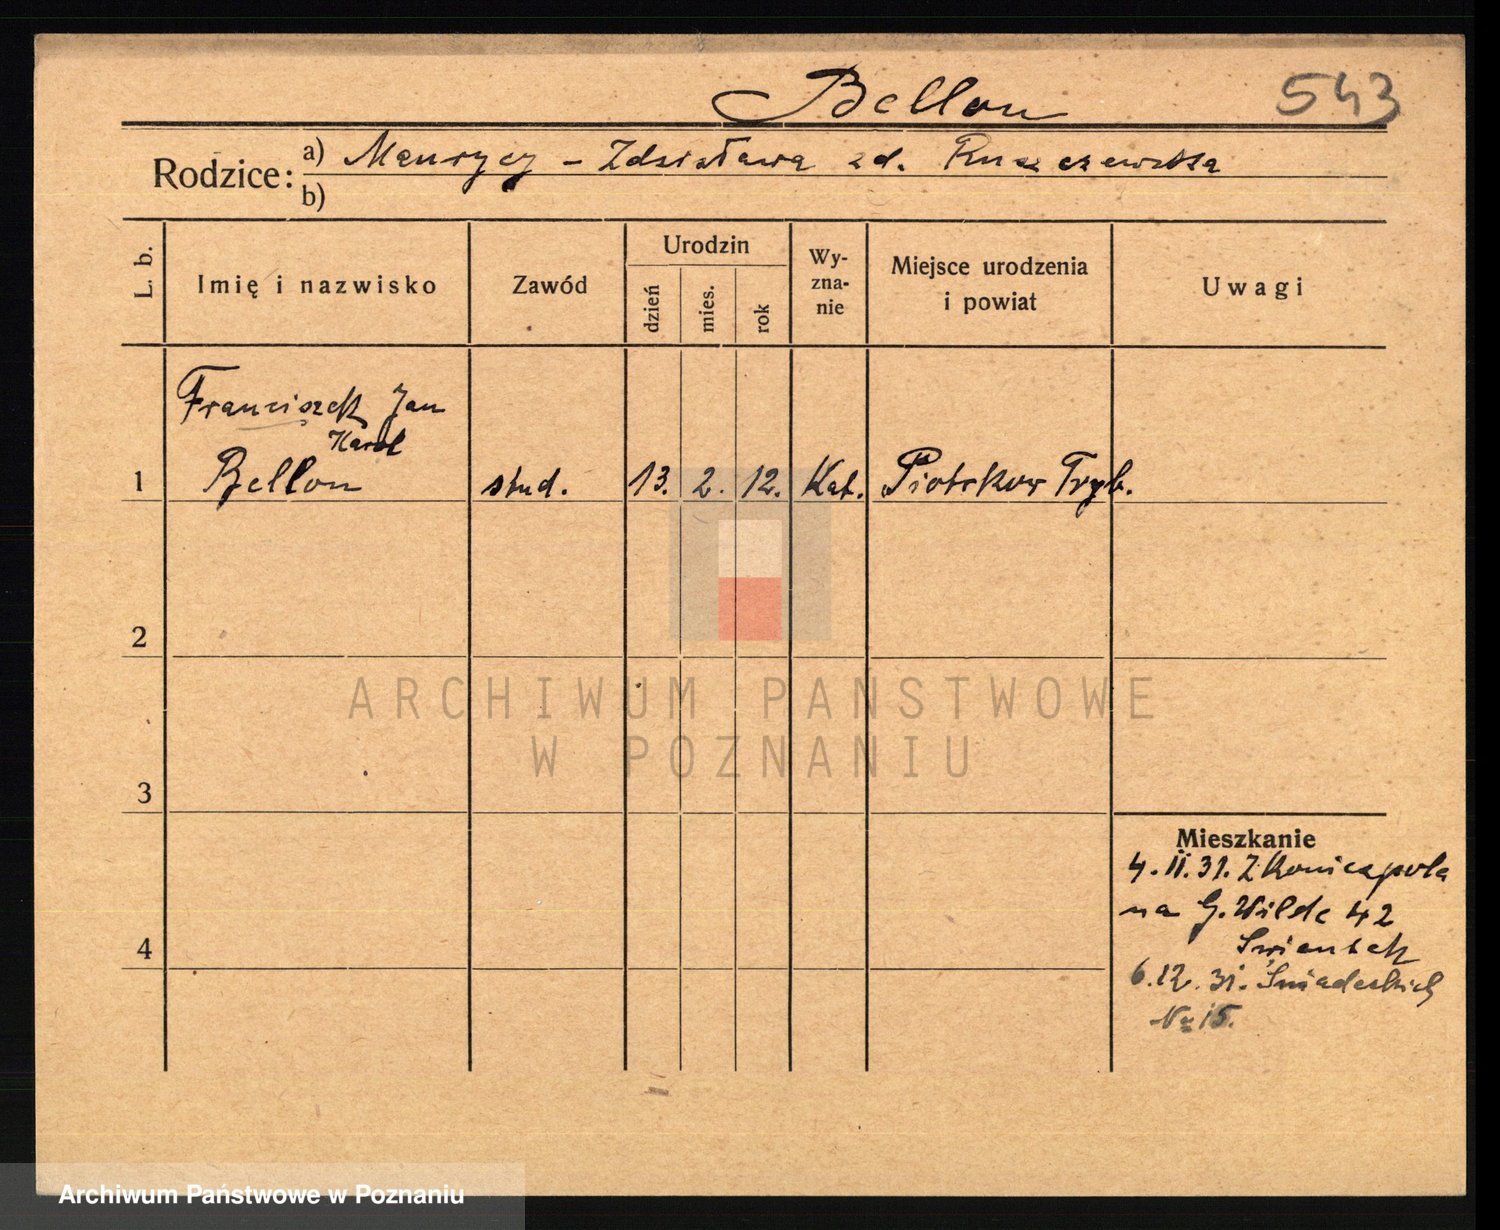 Bellon 543
Rodzice: a) Maurycy - Zdzisława zd. Ruszczewska
b)
L. b.
Imię i nazwisko
Zawód
Urodzin
dzień
mies.
rok
Wy-
zna-
nie
Miejsce urodzenia
i powiat
Uwagi
Franciszek Jan
Karol
1 Bellon stud. 13. 2. 12. Kat. Piotrkow Tryb.
2
ARCHIWUM PAŃSTWOWE
W POZNANIU
3
Mieszkanie
4. II. 31. Z Koniecpola
na G. Wilde 42
4
6.12. 31. Śniadeckich
Nr 15.
Archiwum Państwowe w Poznaniu